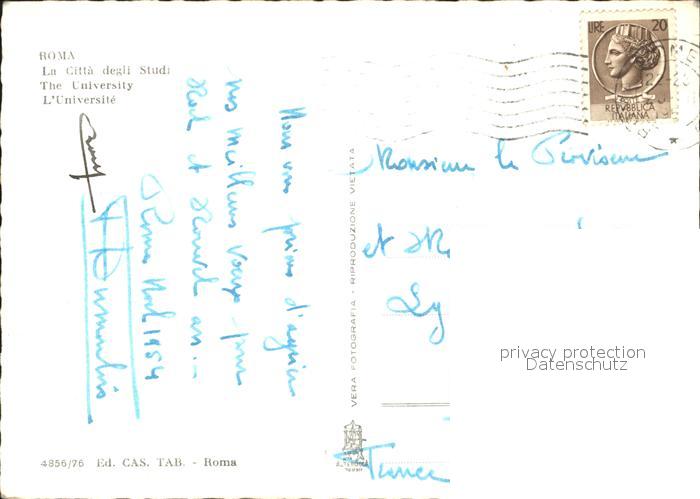 ROMA
La Città degli Studi
The University
L'Université
Nous vous prions d'agréer
nos meilleurs vœux pour
Noël et Nouvel an.-
Rome Noël 1954
4856/76 Ed. CAS. TAB. - Roma
VERA FOTOGRAFIA - RIPRODUZIONE VIETATA
LIRE 20
REPVBBLICA
ITALIANA
Monsieur le Proviseur
et
Ly
France
privacy protection
Datenschutz